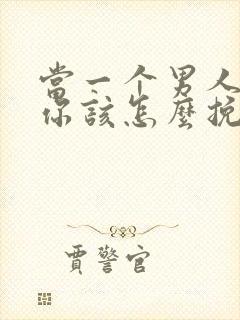 當一个男人
你該怎麼挽
賈警官